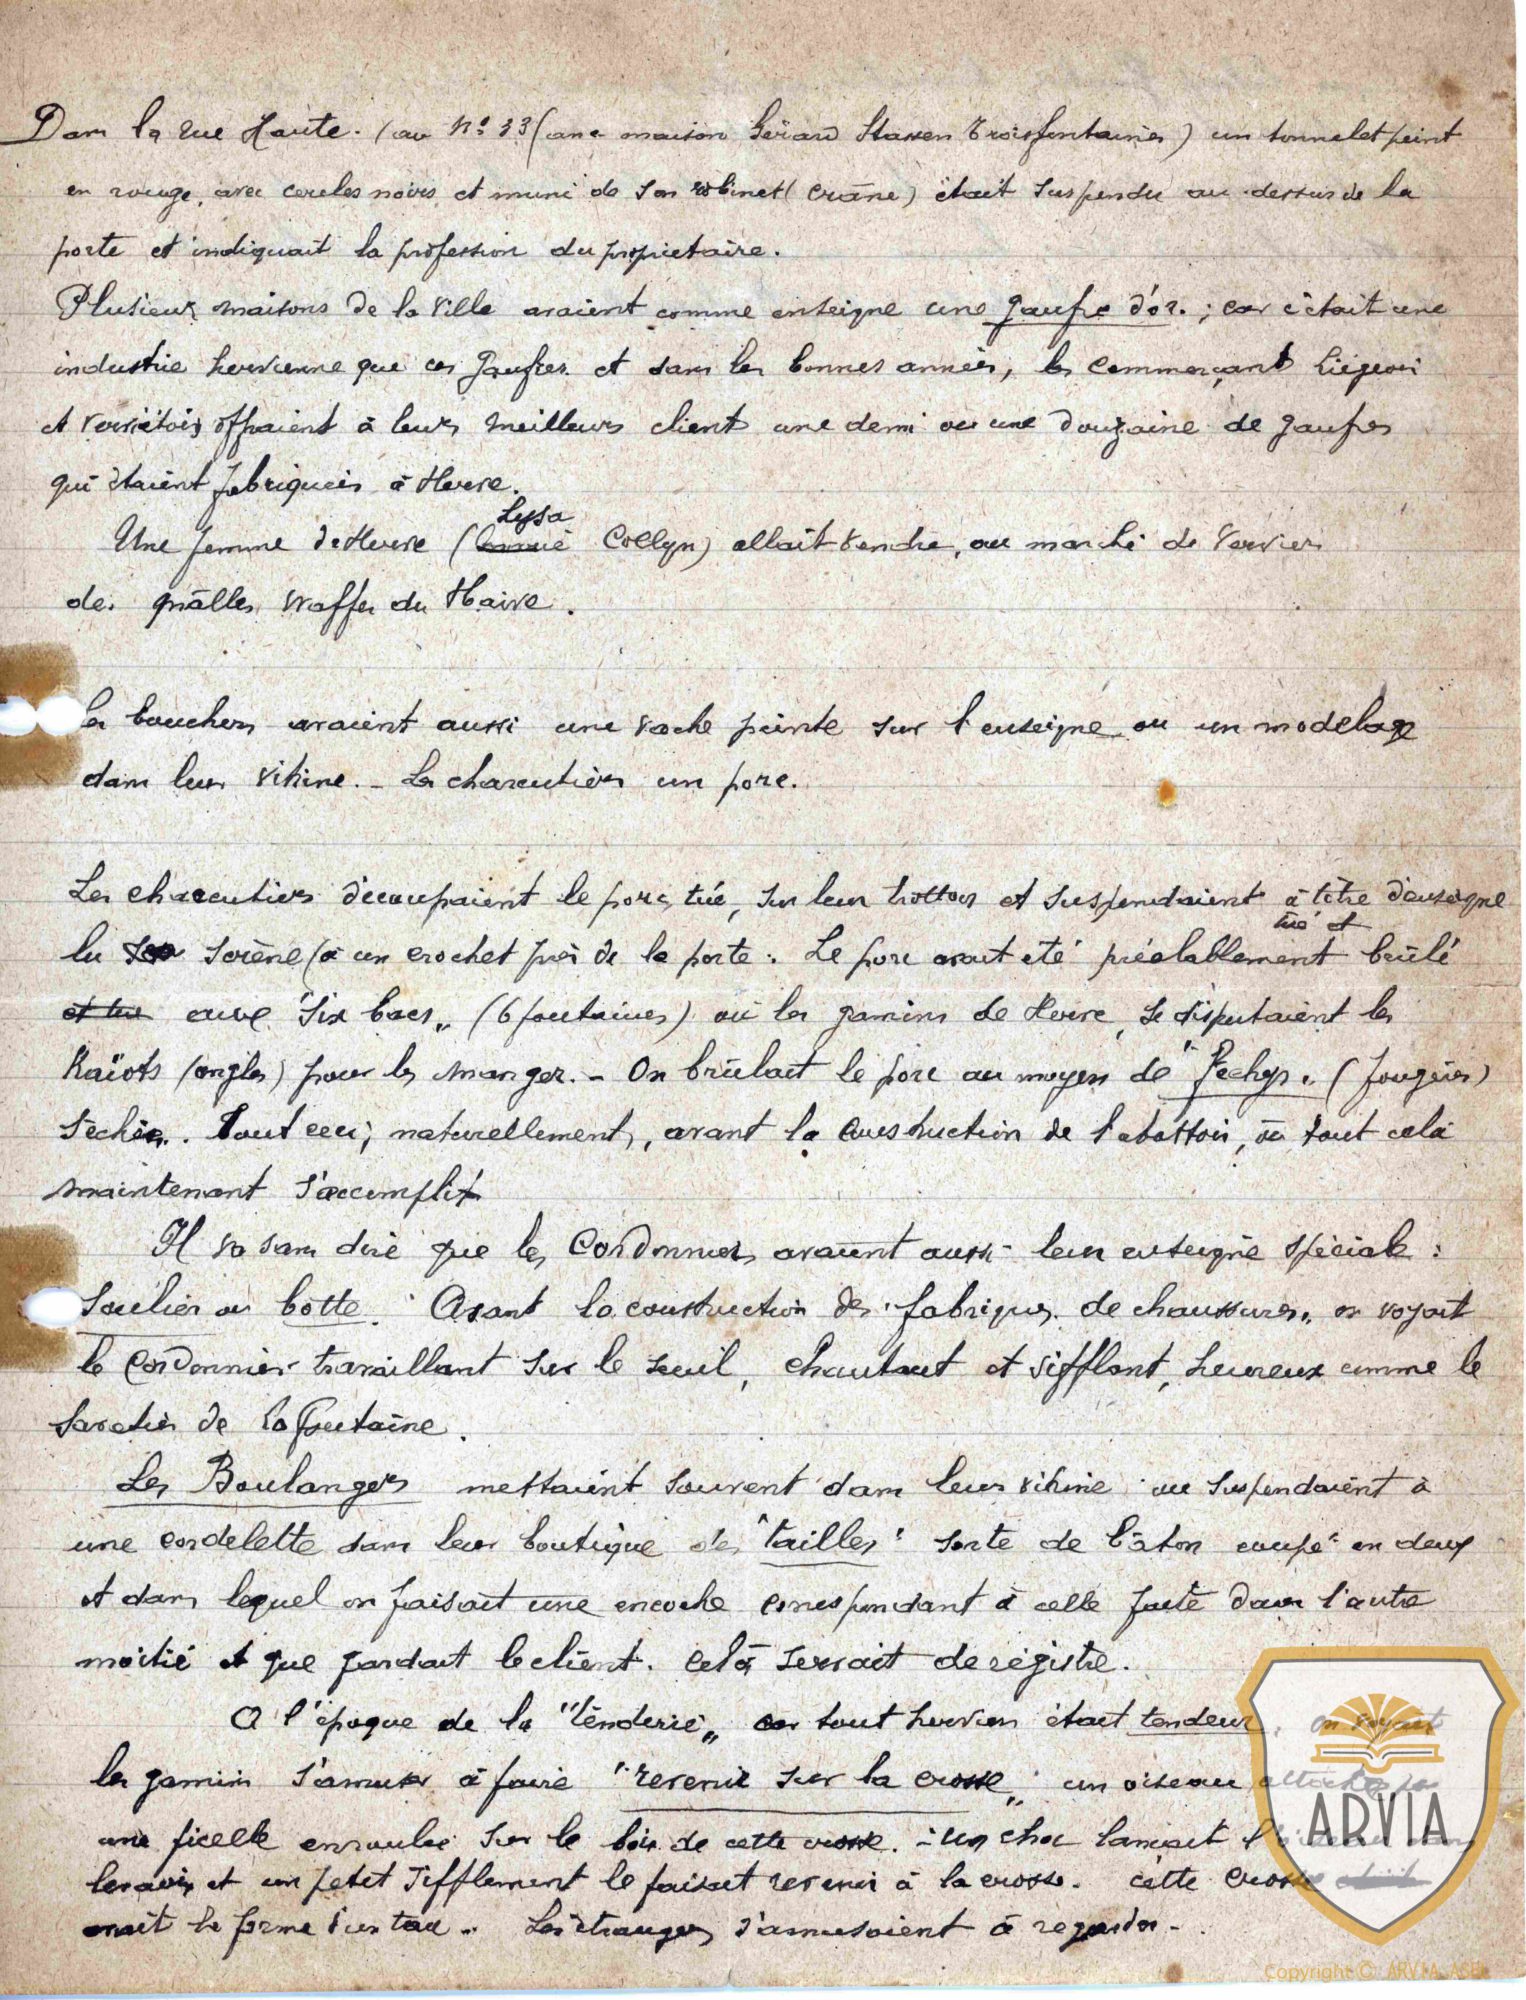 Dans la rue Haute. (au N° 33 (anc maison Gérard Stassen Troisfontaines) un tonnelet peint
en rouge, avec cercles noirs, et muni de son robinet (crâne) était suspendu au-dessus de la
porte et indiquait la profession du propriétaire.
Plusieurs maisons de la ville avaient comme enseigne une gaufre d'or. ; car c'était une
industrie hervienne que ces gaufres et dans les bonnes années, les commerçants liégeois
et verviétois offraient à leurs meilleurs clients une demi ou une douzaine de gaufres
qui étaient fabriquées à Herve.
Lysa
Une femme de Herve ( Collyn) allait vendre, au marché de Verviers
des quâlles waffes du Haive.
Les bouchers avaient aussi une vache peinte sur l'enseigne ou un modelage
dans leur vitrine. - Les charcutiers un porc.
Les charcutiers découpaient le porc, tué, sur leur trottoir et suspendaient à titre d'enseigne
tué et
lu sorène (à un crochet près de la porte. Le porc avait été préalablement brûlé
et tué auve "Six bacs" (6 fontaines) où les gamins de Herve, se disputaient les
Kaïots (ongles) pour les manger. - On brûlait le porc au moyen de "Fechys" (fougères)
séchées. Tout ceci, naturellement, avant la construction de l'abattoir, où tout cela
maintenant s'accomplit
Il va sans dire que les Cordonniers avaient aussi leur enseigne spéciale :
soulier ou botte. Avant la construction des "fabriques de chaussures" on voyait
le Cordonnier travaillant sur le seuil, chantant et sifflant, heureux comme le
savetier de La Fontaine.
Les Boulangers mettaient souvent dans leur vitrine ou suspendaient à
une cordelette dans leur boutique des "tailles" sorte de bâton coupé en deux
et dans lequel on faisait une encoche correspondant à celle faite dans l'autre
moitié et que gardait le client. Celà servait de régistre.
A l'époque de la "tenderie" car tout hervien était tendeur, on voyait
les gamins s'amuser à faire "revenir sur la crosse" un oiseau attaché par
une ficelle enroulée sur le bois de cette crosse. - Un choc lançait l'oiseau dans
les airs et un petit sifflement le faisait revenir à la crosse. Cette crosse
avait la forme d'un tau. Les étrangers s'amusaient à regarder -
ARVIA
Copyright © ARVIA ASBL